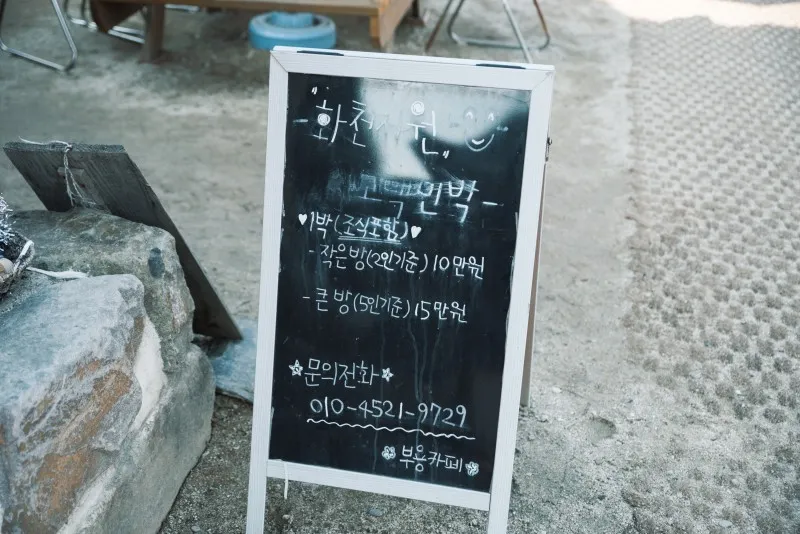 "화천서원"
고택민박-
♥1박(조식포함)♥
- 작은방(2인기준) 10만원
- 큰 방(5인기준) 15만원
☆문의전화☆
010-4521-9729
부용카페